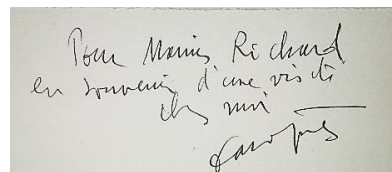 Pour Marius Richard
en souvenir d'une visite
chez moi